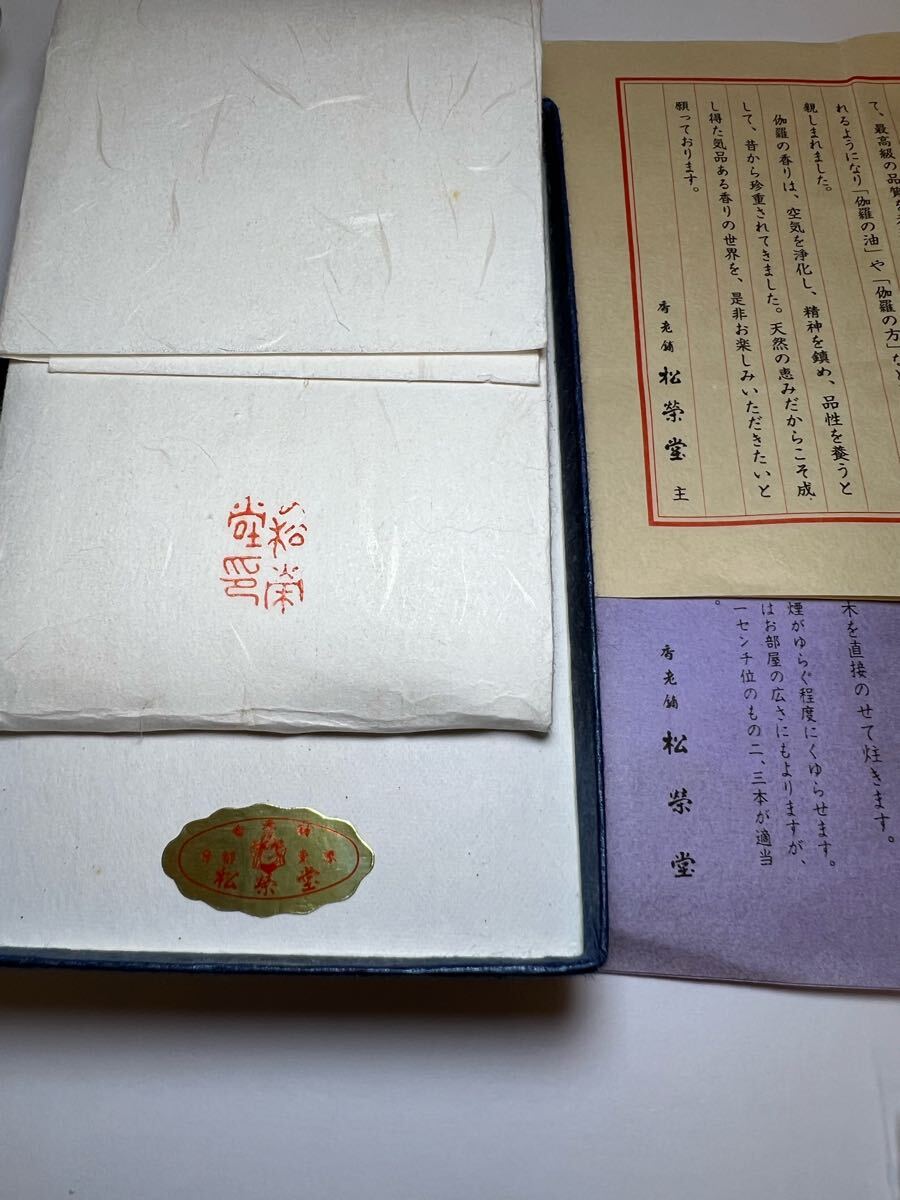 て、最高級の品質
れるようになり「伽羅の油」や「伽羅の方」など
親しまれました。
伽羅の香りは、空気を浄化し、精神を鎮め、品性を養うと
して、昔から珍重されてきました。天然の恵みだからこそ成
し得た気品ある香りの世界を、是非お楽しみいただきたいと
願っております。
香老舗 松榮堂 主
木を直接のせて炷きます。
煙がゆらぐ程度にくゆらせます。
はお部屋の広さにもよりますが、
一センチ位のもの二、三本が適当
。
香老舗 松榮堂
松榮
堂印
京都 東京
松榮堂